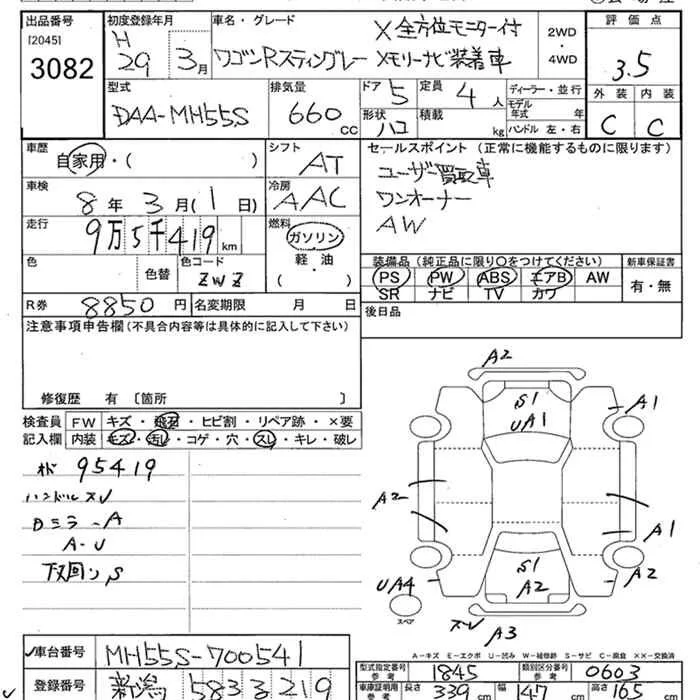 出品番号 初度登録年月 車名・グレード 評価点
[2045] H ×全方位モニター付 2WD
3082 29 3月 ワゴンRスティングレー ×メモリーナビ装着車 ・ 4WD 3.5
型式 排気量 ドア 5 定員 4人 ディーラー・並行 外装 内装
DAA-MH55S 660 CC 形状 ハコ 積載 kg モデル年式 年 C C
ハンドル 左・右
車歴 シフト セールスポイント(正常に機能するものに限ります)
自家用・( ) AT ユーザー買取車
車検 冷房 ワンオーナー
8年 3月(1日) AAC AW
走行 燃料
9万5千419km ガソリン
軽・油
( )
色 色替 色コード ZWZ
装備品(純正品に限り〇をつけてください) 新車保証書
PS PW ABS エアB AW 有・無
SR ナビ TV カワ
R券 8850円 名変期限 月 日 後日品
注意事項申告欄(不具合内容等は具体的に記入して下さい)
修復歴 有〔箇所 〕
検査員 FW キズ・飛石・ヒビ割・リペア跡・×要
記入欄 内装 キズ・汚レ・コゲ・穴・スレ・キレ・破レ
95419
ハンドルスレ
Dミラ-A
A-U
下回りS
A2
S1
UA1
A1
A2
A1
S1
A2
A2
UA4
スペア
スレ
A3
A-キズ E-エクボ U-凹み W-補修跡 S-サビ C-腐食 XX-交換済
車台番号 MH55S-700541
登録番号 新潟 583 る 219
型式指定番号 参考 1845 類別区分番号 参考 0603
車庫証明用 参考 長さ 339 cm 幅 147 cm 高さ 165 cm